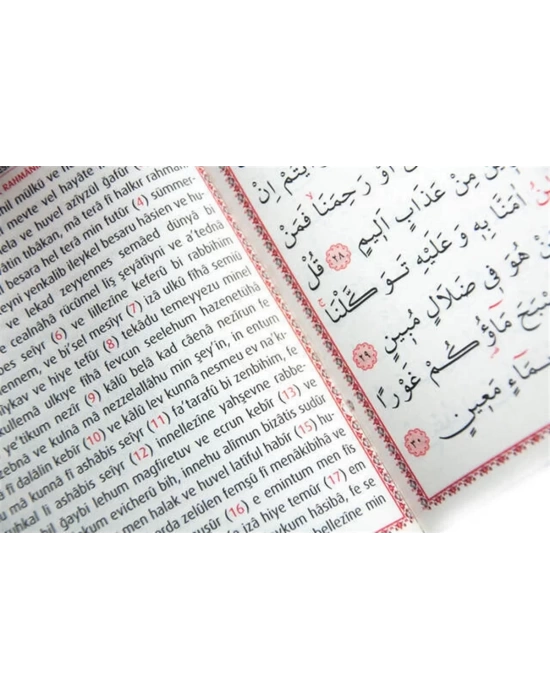 RAHMANİ
mil mülkü ve h
meyte vel hayate
ela ve huvel azîyzül gafûr (
âtin tıbâkan, mâ terâ fî halkır rahmâni
l besara hel terâ min futûr (4) sümmer-
eyni yenkalib ileykel besaru hâsien ve hu-
ve lekad zeyyennes semâed dünyâ bi
ve cealnâhâ rücûmel liş şeyâtîyni ve a'tednâ
bes seîyr (6) ve lillezîne keferû bi rabbihim
hennem, ve bi'sel mesîyr (7) izâ ulkû fîhâ semiû
hîykav ve hiye tefûr (8) tekâdu temeyyezu minel
kullemâ ulkıye fîhâ fevcun seelehum hazenetühâ
e'tikum nezîr (9) kâlû belâ kad câenâ nezîrun fe
zebnâ ve kulnâ mâ nezzelallâhu min şey'in, in entum
â fî dalâlin kebîr (10) ve kâlû lev kunnâ nesmeu ev na'k-
mâ kunnâ fî ashâbis seîyr (11) fa'tarafû bi zenbihim, fe
uhkal li ashâbis seîyr (12) innellezîne yahşevne rabbe-
bil ğaybi lehum mağfiretuv ve ecrun kebîr (13) ve
kum evicherû bih, innehu alîmun bizâtis sudûr
men halak ve huvel latîful habîr (15) hu-
arda zelûlen femşû fî menâkibihâ ve
nuşûr (16) e emintum men fis
e izâ hiye temûr (17) em
aykum hâsibâ, fe se
bellezîne min
اَوْ رَحِمَنَا فَمَنْ
مِنْ عَذَابٍ اَلِيمٍ ﴿٢٨﴾ قُلْ
اٰمَنَّا بِهِ وَعَلَيْهِ تَوَكَّلْنَا
هُوَ فِي ضَلَالٍ مُبِينٍ ﴿٢٩﴾
مَاؤُكُمْ غَوْرًا
مَعِينٍ ﴿٣٠﴾